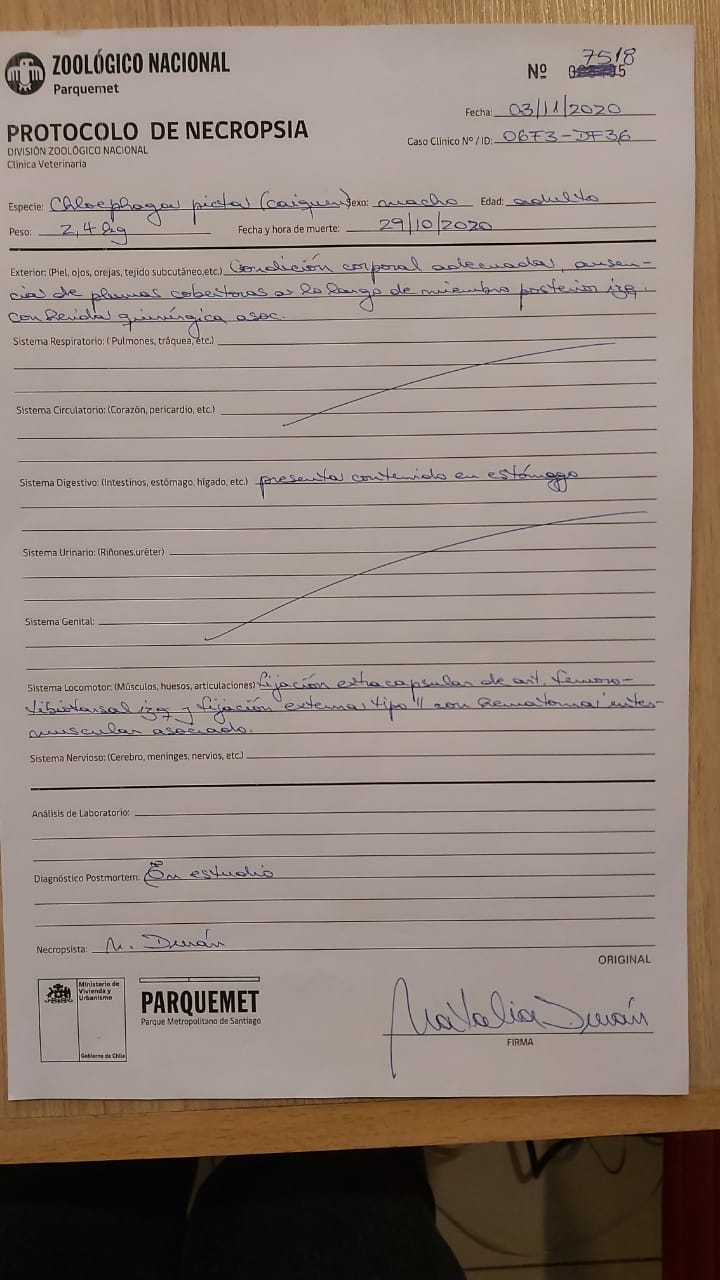 ZOOLÓGICO NACIONAL
Parquemet
Nº 7518
Fecha: 03/11/2020
PROTOCOLO DE NECROPSIA
Caso Clínico Nº / ID: 0673-DF36
DIVISIÓN ZOOLÓGICO NACIONAL
Clínica Veterinaria
Especie: Chloephaga picta (caiquen) Sexo: macho Edad: adulto
Peso: 2,4 kg Fecha y hora de muerte: 29/10/2020
Exterior: (Piel, ojos, orejas, tejido subcutáneo,etc.) Condición corporal adecuada, ausen-
cia de plumas cobertoras a lo largo de miembro posterior izq.
con herida quirúrgica asoc.
Sistema Respiratorio: ( Pulmones, tráquea, etc.)
Sistema Circulatorio: (Corazón, pericardio, etc.)
Sistema Digestivo: (Intestinos, estómago, hígado, etc.) presenta contenido en estómago
Sistema Urinario: (Riñones,uréter)
Sistema Genital:
Sistema Locomotor: (Músculos, huesos, articulaciones) Fijación extracapsular de art. femoro-
tibiotarsal izq y fijación externa tipo II con hematoma inter-
muscular asociado.
Sistema Nervioso: (Cerebro, meninges, nervios, etc.)
Análisis de Laboratorio:
Diagnóstico Postmortem: En estudio
Necropsista: N. Durán
ORIGINAL
Ministerio de
Vivienda y
Urbanismo
Gobierno de Chile
PARQUEMET
Parque Metropolitano de Santiago
Natalia Durán
FIRMA